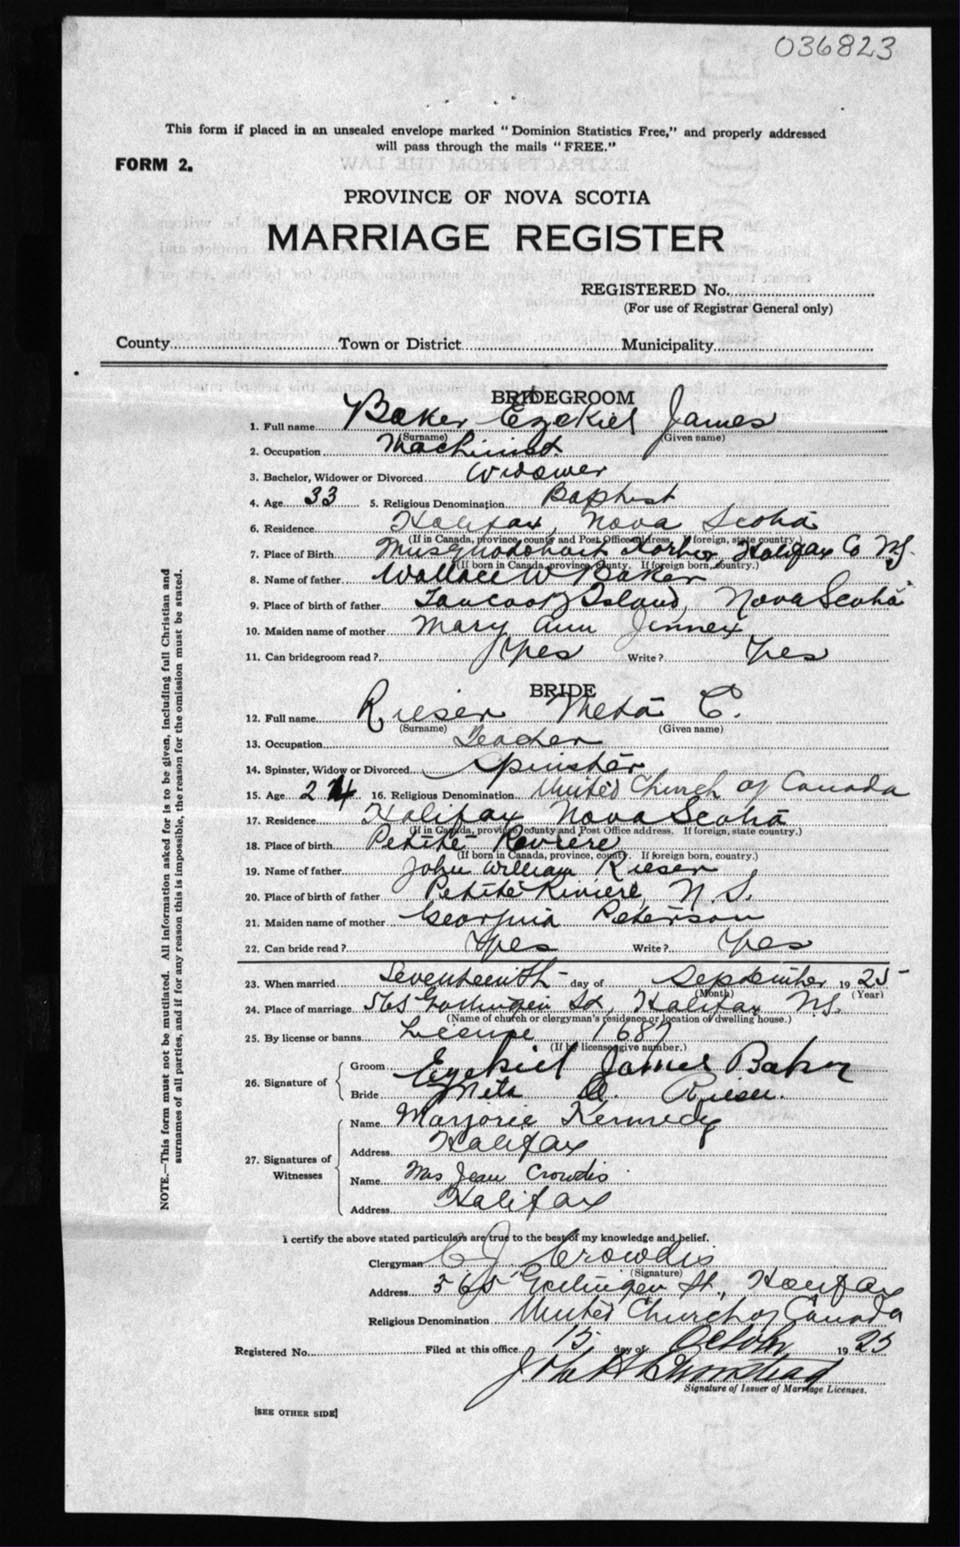 036823
This form if placed in an unsealed envelope marked "Dominion Statistics Free," and properly addressed
will pass through the mails "FREE."
FORM 2.
PROVINCE OF NOVA SCOTIA
MARRIAGE REGISTER
REGISTERED No.
(For use of Registrar General only)
County Town or District Municipality
BRIDEGROOM
1. Full name Baker Ezekiel James
(Surname) (Given name)
2. Occupation Machinist
3. Bachelor, Widower or Divorced Widower
4. Age 33 5. Religious Denomination Baptist
6. Residence Halifax, Nova Scotia
(If in Canada, province, county and Post Office address. If foreign, state country.)
7. Place of Birth Musquodoboit Harbor, Halifax Co NS.
(If born in Canada, province, county. If foreign born, country.)
8. Name of father Wallace W Baker
9. Place of birth of father Tancook Island, Nova Scotia
10. Maiden name of mother Mary Ann Jinnex
11. Can bridegroom read? Yes Write? Yes
BRIDE
12. Full name Rieser Meta C.
(Surname) (Given name)
13. Occupation Teacher
14. Spinster, Widow or Divorced Spinster
15. Age 24 16. Religious Denomination United Church of Canada
17. Residence Halifax Nova Scotia
(If in Canada, province, county and Post Office address. If foreign, state country.)
18. Place of birth Petite Reviere
(If born in Canada, province, county. If foreign born, country.)
19. Name of father John William Rieser
20. Place of birth of father Petite Riviere, N.S.
21. Maiden name of mother Georgina Peterson
22. Can bride read? Yes Write? Yes
23. When married Seventeenth day of September 1925
(Month) (Year)
24. Place of marriage 565 Gottingen St, Halifax N.S.
(Name of church or clergyman's residence or location of dwelling house.)
25. By license or banns License 1687
(If by license give number.)
26. Signature of Groom Ezekiel James Baker
Bride Meta C. Rieser.
27. Signatures of Witnesses Name Marjorie Kennedy
Address Halifax
Name Mrs Jean Crowdis
Address Halifax
I certify the above stated particulars are true to the best of my knowledge and belief.
Clergyman C J Crowdis
(Signature)
Address 565 Gottingen St., Halifax
Religious Denomination United Church of Canada
Registered No. Filed at this office 15 day of October 1925
John H
Signature of Issuer of Marriage Licenses.
[SEE OTHER SIDE]
NOTE.—This form must not be mutilated. All information asked for is to be given, including full Christian and
surnames of all parties, and if for any reason this is impossible, the reason for the omission must be stated.